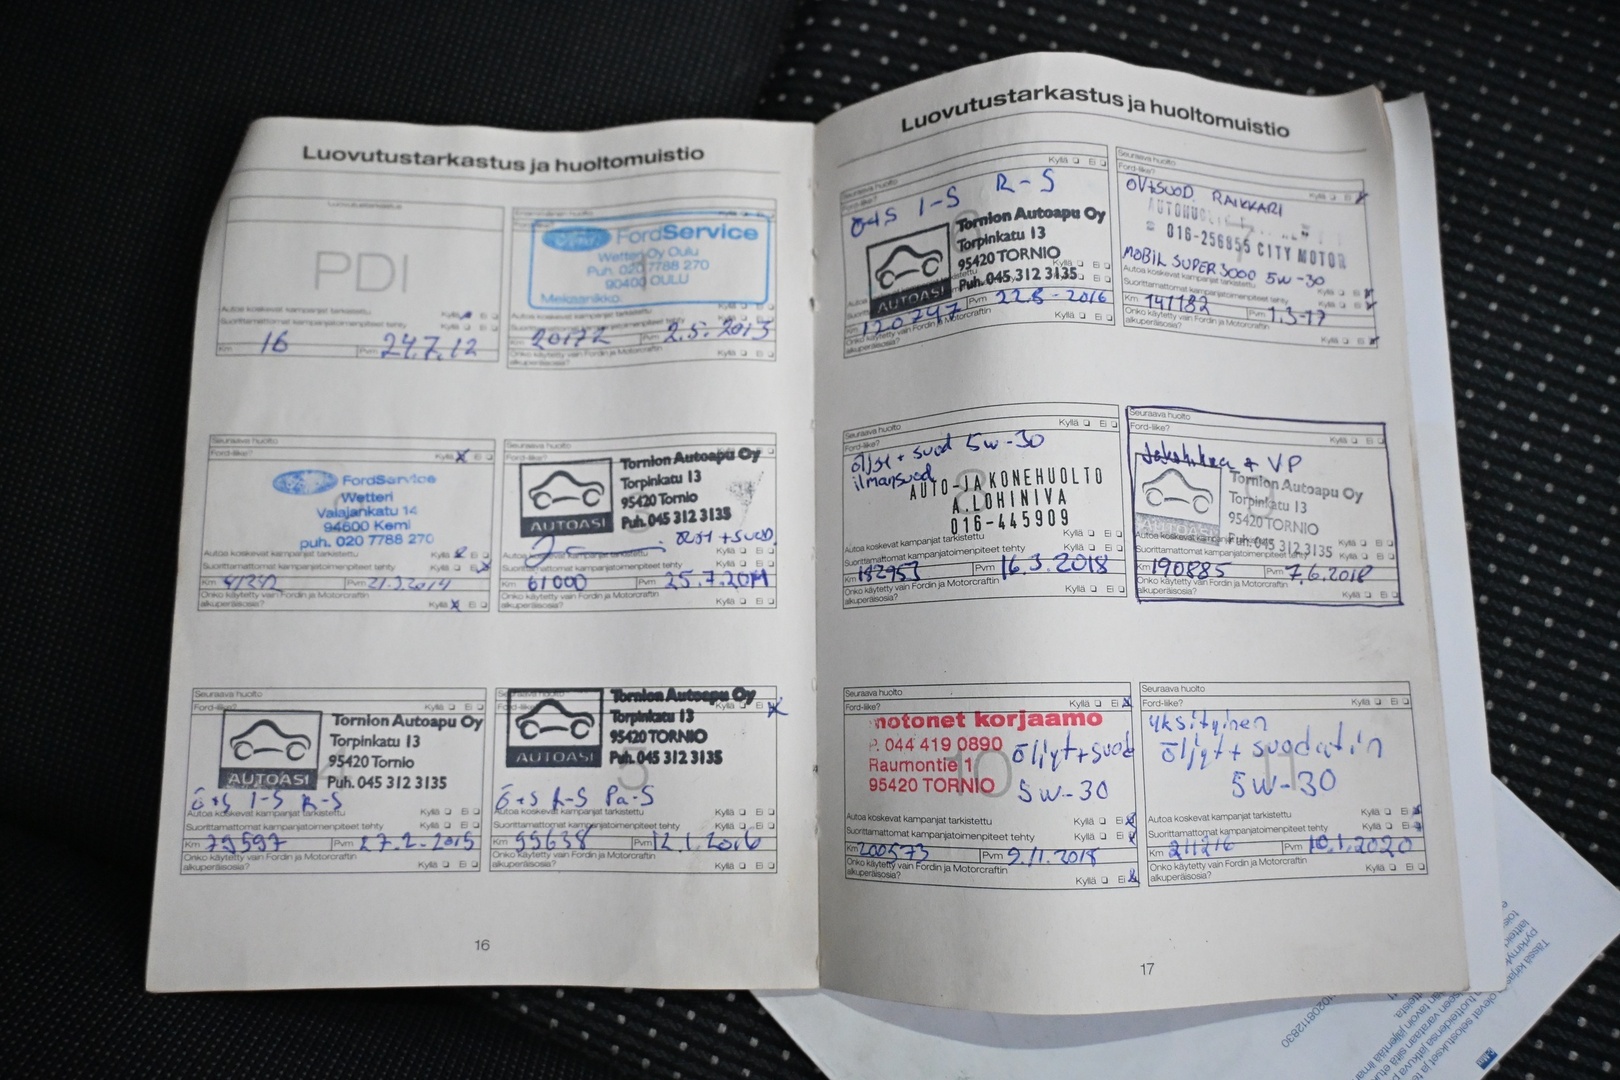 Luovutustarkastus ja huoltomuistio
Luovutustarkastus
PDI
Autoa koskevat kampanjat tarkistettu
Kyllä Ei
Suorittamattomat kampanjatoimenpiteet tehty
Km 16 Pvm 24.7.12
Kyllä Ei
FordService
Wetteri Oy Oulu
Puh. 020 7788 270
90400 OULU
Mekaanikko:
Autoa koskevat kampanjat tarkistettu
Suorittamattomat kampanjatoimenpiteet tehty Kyllä Ei
Km 20172 Pvm 2.5.2013
Onko käytetty vain Fordin ja Motorcraftin
alkuperäisosia? Kyllä Ei
Seuraava huolto
Ford-liike? Kyllä Ei
FordService
Wetteri
Valajankatu 14
94600 Kemi
puh. 020 7788 270
Autoa koskevat kampanjat tarkistettu Kyllä Ei
Suorittamattomat kampanjatoimenpiteet tehty
Km 41242 Pvm 21.3.2014
Onko käytetty vain Fordin ja Motorcraftin
alkuperäisosia? Kyllä Ei
Seuraava huolto
Ford-liike?
Tornion Autoapu Oy
Torpinkatu 13
95420 Tornio
Puh. 045 312 3135
AUTOASI
+ suod.
Autoa koskevat kampanjat tarkistettu
Suorittamattomat kampanjatoimenpiteet tehty Kyllä Ei
Km 61000 Pvm 25.7.2014
Onko käytetty vain Fordin ja Motorcraftin
alkuperäisosia? Kyllä Ei
Seuraava huolto
Ford-liike? Kyllä Ei
Tornion Autoapu Oy
Torpinkatu 13
95420 Tornio
Puh. 045 312 3135
AUTOASI
4
ö+s I-S R-S
Autoa koskevat kampanjat tarkistettu Kyllä Ei
Suorittamattomat kampanjatoimenpiteet tehty Kyllä Ei
Km 79597 Pvm 27.2.2015
Onko käytetty vain Fordin ja Motorcraftin
alkuperäisosia? Kyllä Ei
Seuraava huolto
Ford-liike? Kyllä Ei
Tornion Autoapu Oy
Torpinkatu 13
95420 TORNIO
Puh. 045 312 3135
AUTOASI
5
ö+s R-S Pa-S
Autoa koskevat kampanjat tarkistettu Kyllä Ei
Suorittamattomat kampanjatoimenpiteet tehty Kyllä Ei
Km 99638 Pvm 12.1.2016
Onko käytetty vain Fordin ja Motorcraftin
alkuperäisosia? Kyllä Ei
16
Luovutustarkastus ja huoltomuistio
Seuraava huolto
Ford-liike? Kyllä Ei
ö+s I-S R-S
Tornion Autoapu Oy
Torpinkatu 13
95420 TORNIO
Puh. 045 312 3135
AUTOASI
Km 120747 Pvm 22.8-2016
Onko käytetty vain Fordin ja Motorcraftin
alkuperäisosia? Kyllä Ei
Seuraava huolto
Ford-liike? Kyllä Ei
RAIKKARI
016-256855 CITY MOTOR
MOBIL SUPER 3000 5W-30
Autoa koskevat kampanjat tarkistettu
Suorittamattomat kampanjatoimenpiteet tehty Kyllä Ei
Km 141182 Pvm 1.3-17
Onko käytetty vain Fordin ja Motorcraftin
alkuperäisosia? Kyllä Ei
Seuraava huolto
Ford-liike? Kyllä Ei
+ suod 5w-30
ilmansuod
8
AUTO-JA KONEHUOLTO
A.LOHINIVA
016-445909
Autoa koskevat kampanjat tarkistettu
Suorittamattomat kampanjatoimenpiteet tehty Kyllä Ei
Km 182953 Pvm 16.3.2018
Onko käytetty vain Fordin ja Motorcraftin
alkuperäisosia? Kyllä Ei
Seuraava huolto
Ford-liike? Kyllä Ei
+ VP
Tornion Autoapu Oy
Torpinkatu 13
95420 TORNIO
Puh. 045 312 3135
AUTOASI
Autoa koskevat
Suorittamattomat kampanjatoimenpiteet tehty Kyllä Ei
Km 190885 Pvm 7.6.2018
Onko käytetty vain Fordin ja Motorcraftin
alkuperäisosia? Kyllä Ei
Seuraava huolto
Ford-liike? Kyllä Ei
motonet korjaamo
P. 044 419 0890
Raumontie 1
95420 TORNIO
10
öljyt+suod
5w-30
Autoa koskevat kampanjat tarkistettu Kyllä Ei
Suorittamattomat kampanjatoimenpiteet tehty Kyllä Ei
Km 200573 Pvm 9.11.2018
Onko käytetty vain Fordin ja Motorcraftin
alkuperäisosia? Kyllä Ei
Seuraava huolto
Ford-liike? Kyllä Ei
yksityinen
öljyt + suodatin
5W-30
11
Autoa koskevat kampanjat tarkistettu Kyllä Ei
Suorittamattomat kampanjatoimenpiteet tehty Kyllä Ei
Km 211216 Pvm 10.1.2020
Onko käytetty vain Fordin ja Motorcraftin
alkuperäisosia? Kyllä Ei
17